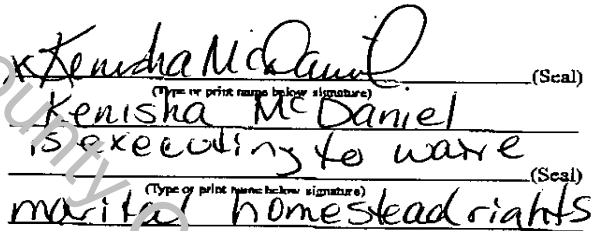 x Kenisha McDaniel (Seal)
(Type or print name below signature)
Kenisha McDaniel
is executing to waive
(Seal)
(Type or print name below signature)
marital homestead rights
ounty C